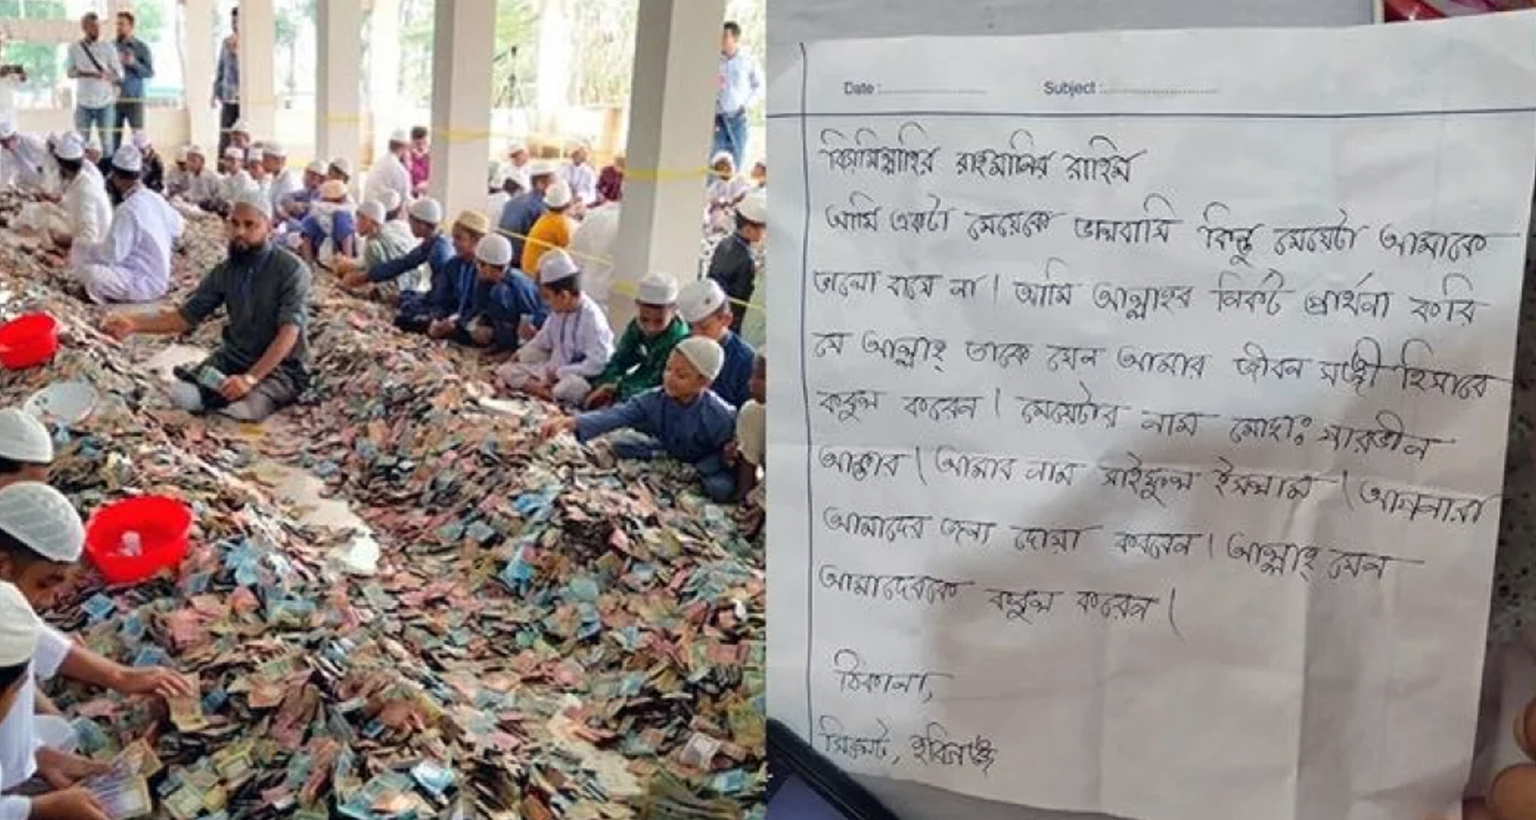 Date :.................... Subject :......................
বিসমিল্লাহির রাহমানির রাহিম
আমি একটা মেয়েকে ভালবাসি কিন্তু মেয়েটা আমাকে
ভালো বাসে না। আমি আল্লাহর নিকট প্রার্থনা করি
যে আল্লাহ্ তাকে যেন আমার জীবন সঙ্গী হিসাবে
কবুল করেন। মেয়েটার নাম মোছাঃ শারভীন
আক্তার। আমার নাম সাইফুল ইসলাম। আপনারা
আমাদের জন্য দোয়া করবেন। আল্লাহ্ যেন
আমাদেরকে কবুল করেন।
ঠিকানা,
সিলেট, হবিগঞ্জ